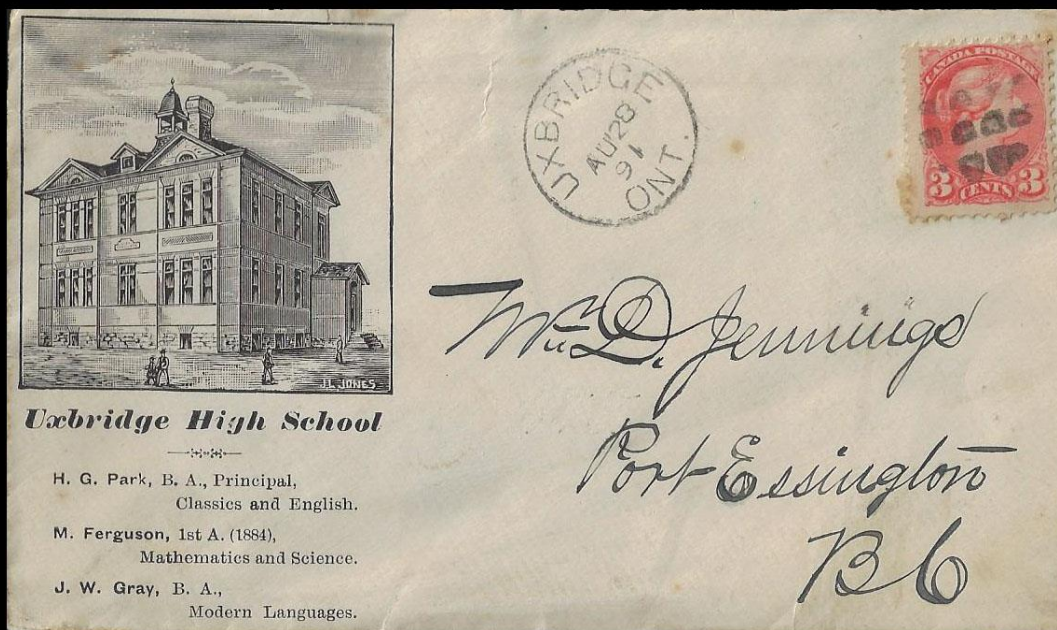 J.L. JONES
Uxbridge High School
H. G. Park, B. A., Principal,
Classics and English.
M. Ferguson, 1st A. (1884),
Mathematics and Science.
J. W. Gray, B. A.,
Modern Languages.
UXBRIDGE
AU 28
91
ONT.
CANADA POSTAGE
3 CENTS 3
Mr. D. Jennings
Port Essington
B C